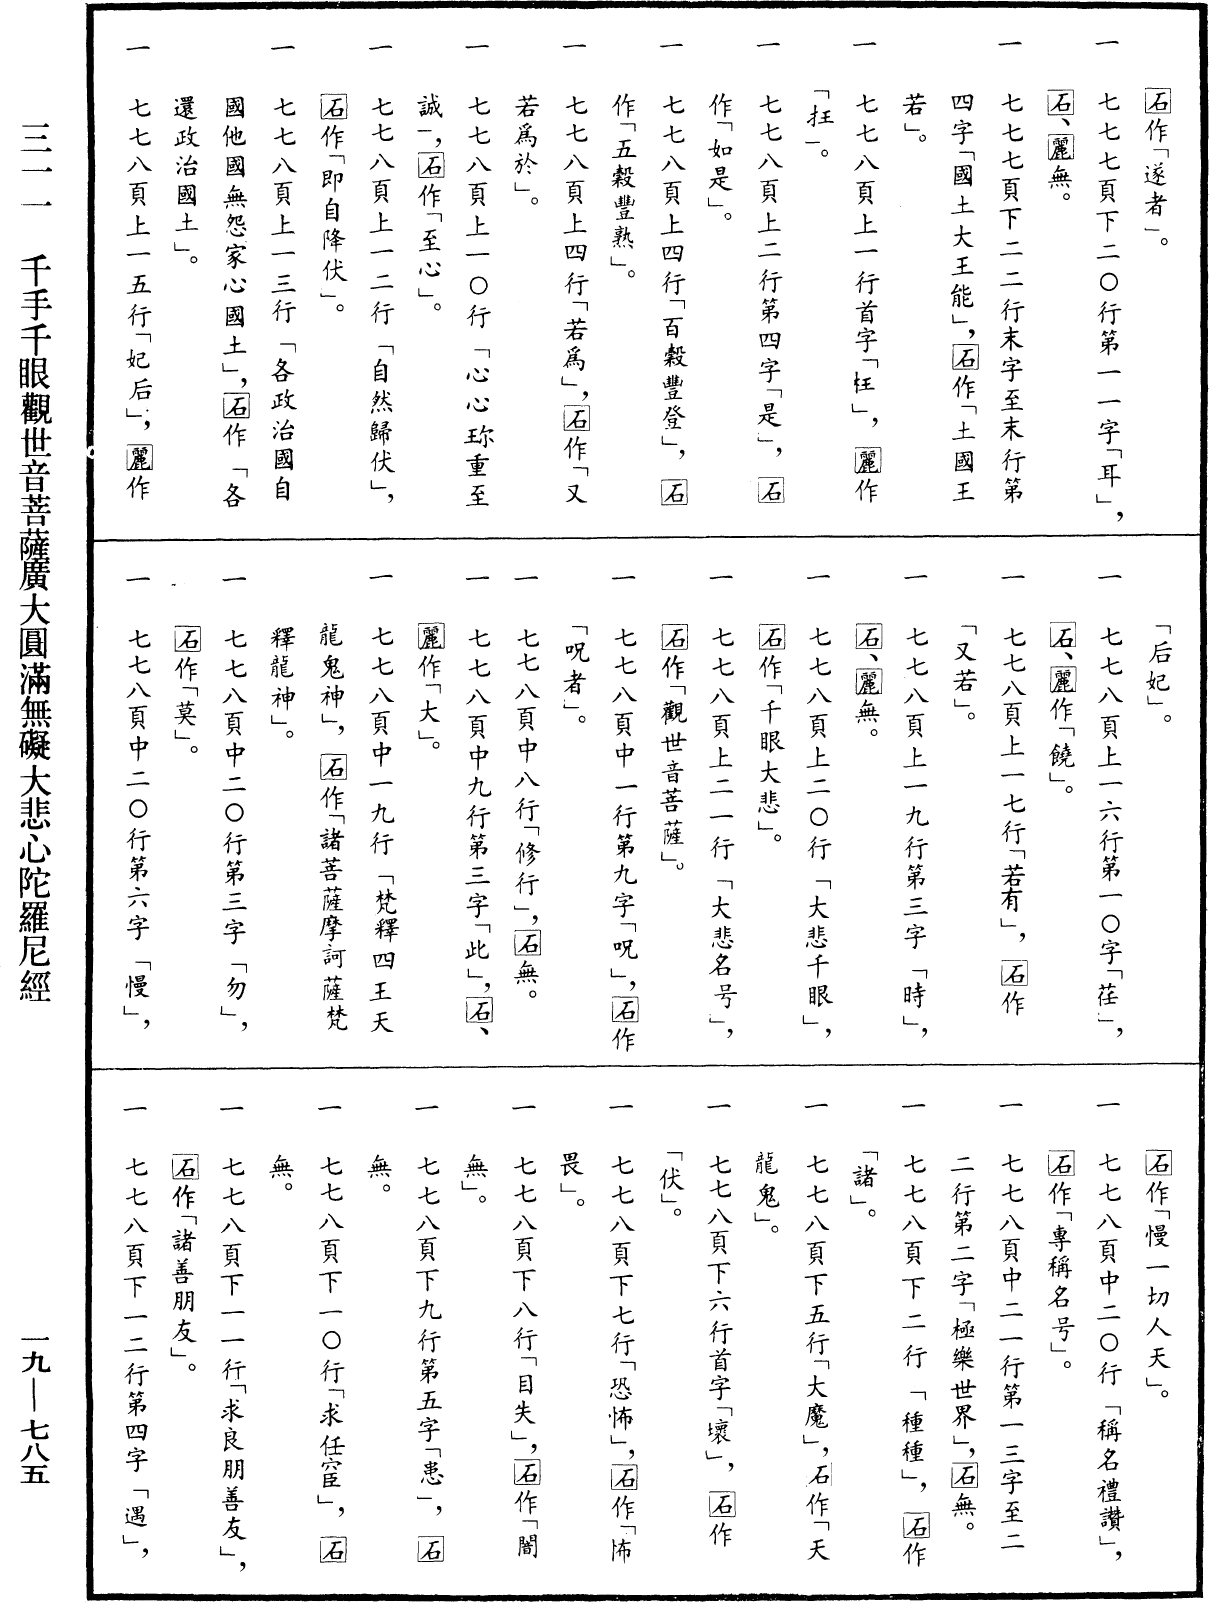 石作「遂者」。
一　七七七頁下二〇行第一一字「耳」，
石、麗無。
一　七七七頁下二二行末字至末行第
四字「國土大王能」，石作「土國王
若」。
一　七七八頁上一行首字「枉」，麗作
「抂」。
一　七七八頁上二行第四字「是」，石
作「如是」。
一　七七八頁上四行「百穀豐登」，石
作「五穀豐熟」。
一　七七八頁上四行「若爲」，石作「又
若爲於」。
一　七七八頁上一〇行「心心珎重至
誠」，石作「至心」。
一　七七八頁上一二行「自然歸伏」，
石作「即自降伏」。
一　七七八頁上一三行「各政治國自
國他國無怨家心國土」，石作「各
還政治國土」。
一　七七八頁上一五行「妃后」，麗作
「后妃」。
一　七七八頁上一六行第一〇字「荏」，
石、麗作「饒」。
一　七七八頁上一七行「若有」，石作
「又若」。
一　七七八頁上一九行第三字「時」，
石、麗無。
一　七七八頁上二〇行「大悲千眼」，
石作「千眼大悲」。
一　七七八頁上二一行「大悲名号」，
石作「觀世音菩薩」。
一　七七八頁中一行第九字「呪」，石作
「呪者」。
一　七七八頁中八行「修行」，石無。
一　七七八頁中九行第三字「此」，石、
麗作「大」。
一　七七八頁中一九行「梵釋四王天
龍鬼神」，石作「諸菩薩摩訶薩梵
釋龍神」。
一　七七八頁中二〇行第三字「勿」，
石作「莫」。
一　七七八頁中二〇行第六字「慢」，
石作「慢一切人天」。
一　七七八頁中二〇行「稱名禮讚」，
石作「專稱名号」。
一　七七八頁中二一行第一三字至二
二行第二字「極樂世界」，石無。
一　七七八頁下二行「種種」，石作
「諸」。
一　七七八頁下五行「大魔」，石作「天
龍鬼」。
一　七七八頁下六行首字「壞」，石作
「伏」。
一　七七八頁下七行「恐怖」，石作「怖
畏」。
一　七七八頁下八行「目失」，石作「闇
無」。
一　七七八頁下九行第五字「患」，石
無。
一　七七八頁下一〇行「求任宦」，石
無。
一　七七八頁下一一行「求良朋善友」，
石作「諸善朋友」。
一　七七八頁下一二行第四字「遇」，
三一一　千手千眼觀世音菩薩廣大圓滿無礙大悲心陀羅尼經
一九—七八五